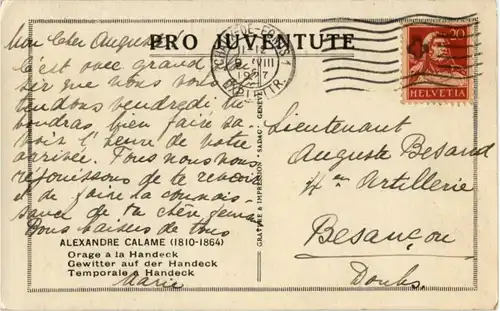 PRO JUVENTUTE
Mon cher Auguste
C'est avec grand
sir que nous vous
tendons vendredi tu
voudras bien faire sa
voir l'heure de votre
arrivée. Tous nous nous
réjouissons de te revoir
et de faire la connais-
sance de ta chère
Bons baisers de tous
Marie
ALEXANDRE CALAME (1810-1864)
Orage a la Handeck
Gewitter auf der Handeck
Temporale a Handeck
GRAVURE & IMPRESSION - SADAG - GENÈVE
LA CHAUX-DE-FONDS 1
VIII
EXP. LETTR.
20
HELVETIA
Lieutenant
Auguste Besand
en Artillerie
Besançon
Doubs.